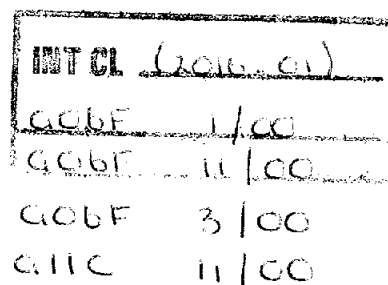 INT CL (2016.01)
G06F 1/00
G06F 11/00
G06F 3/00
G11C 11/00